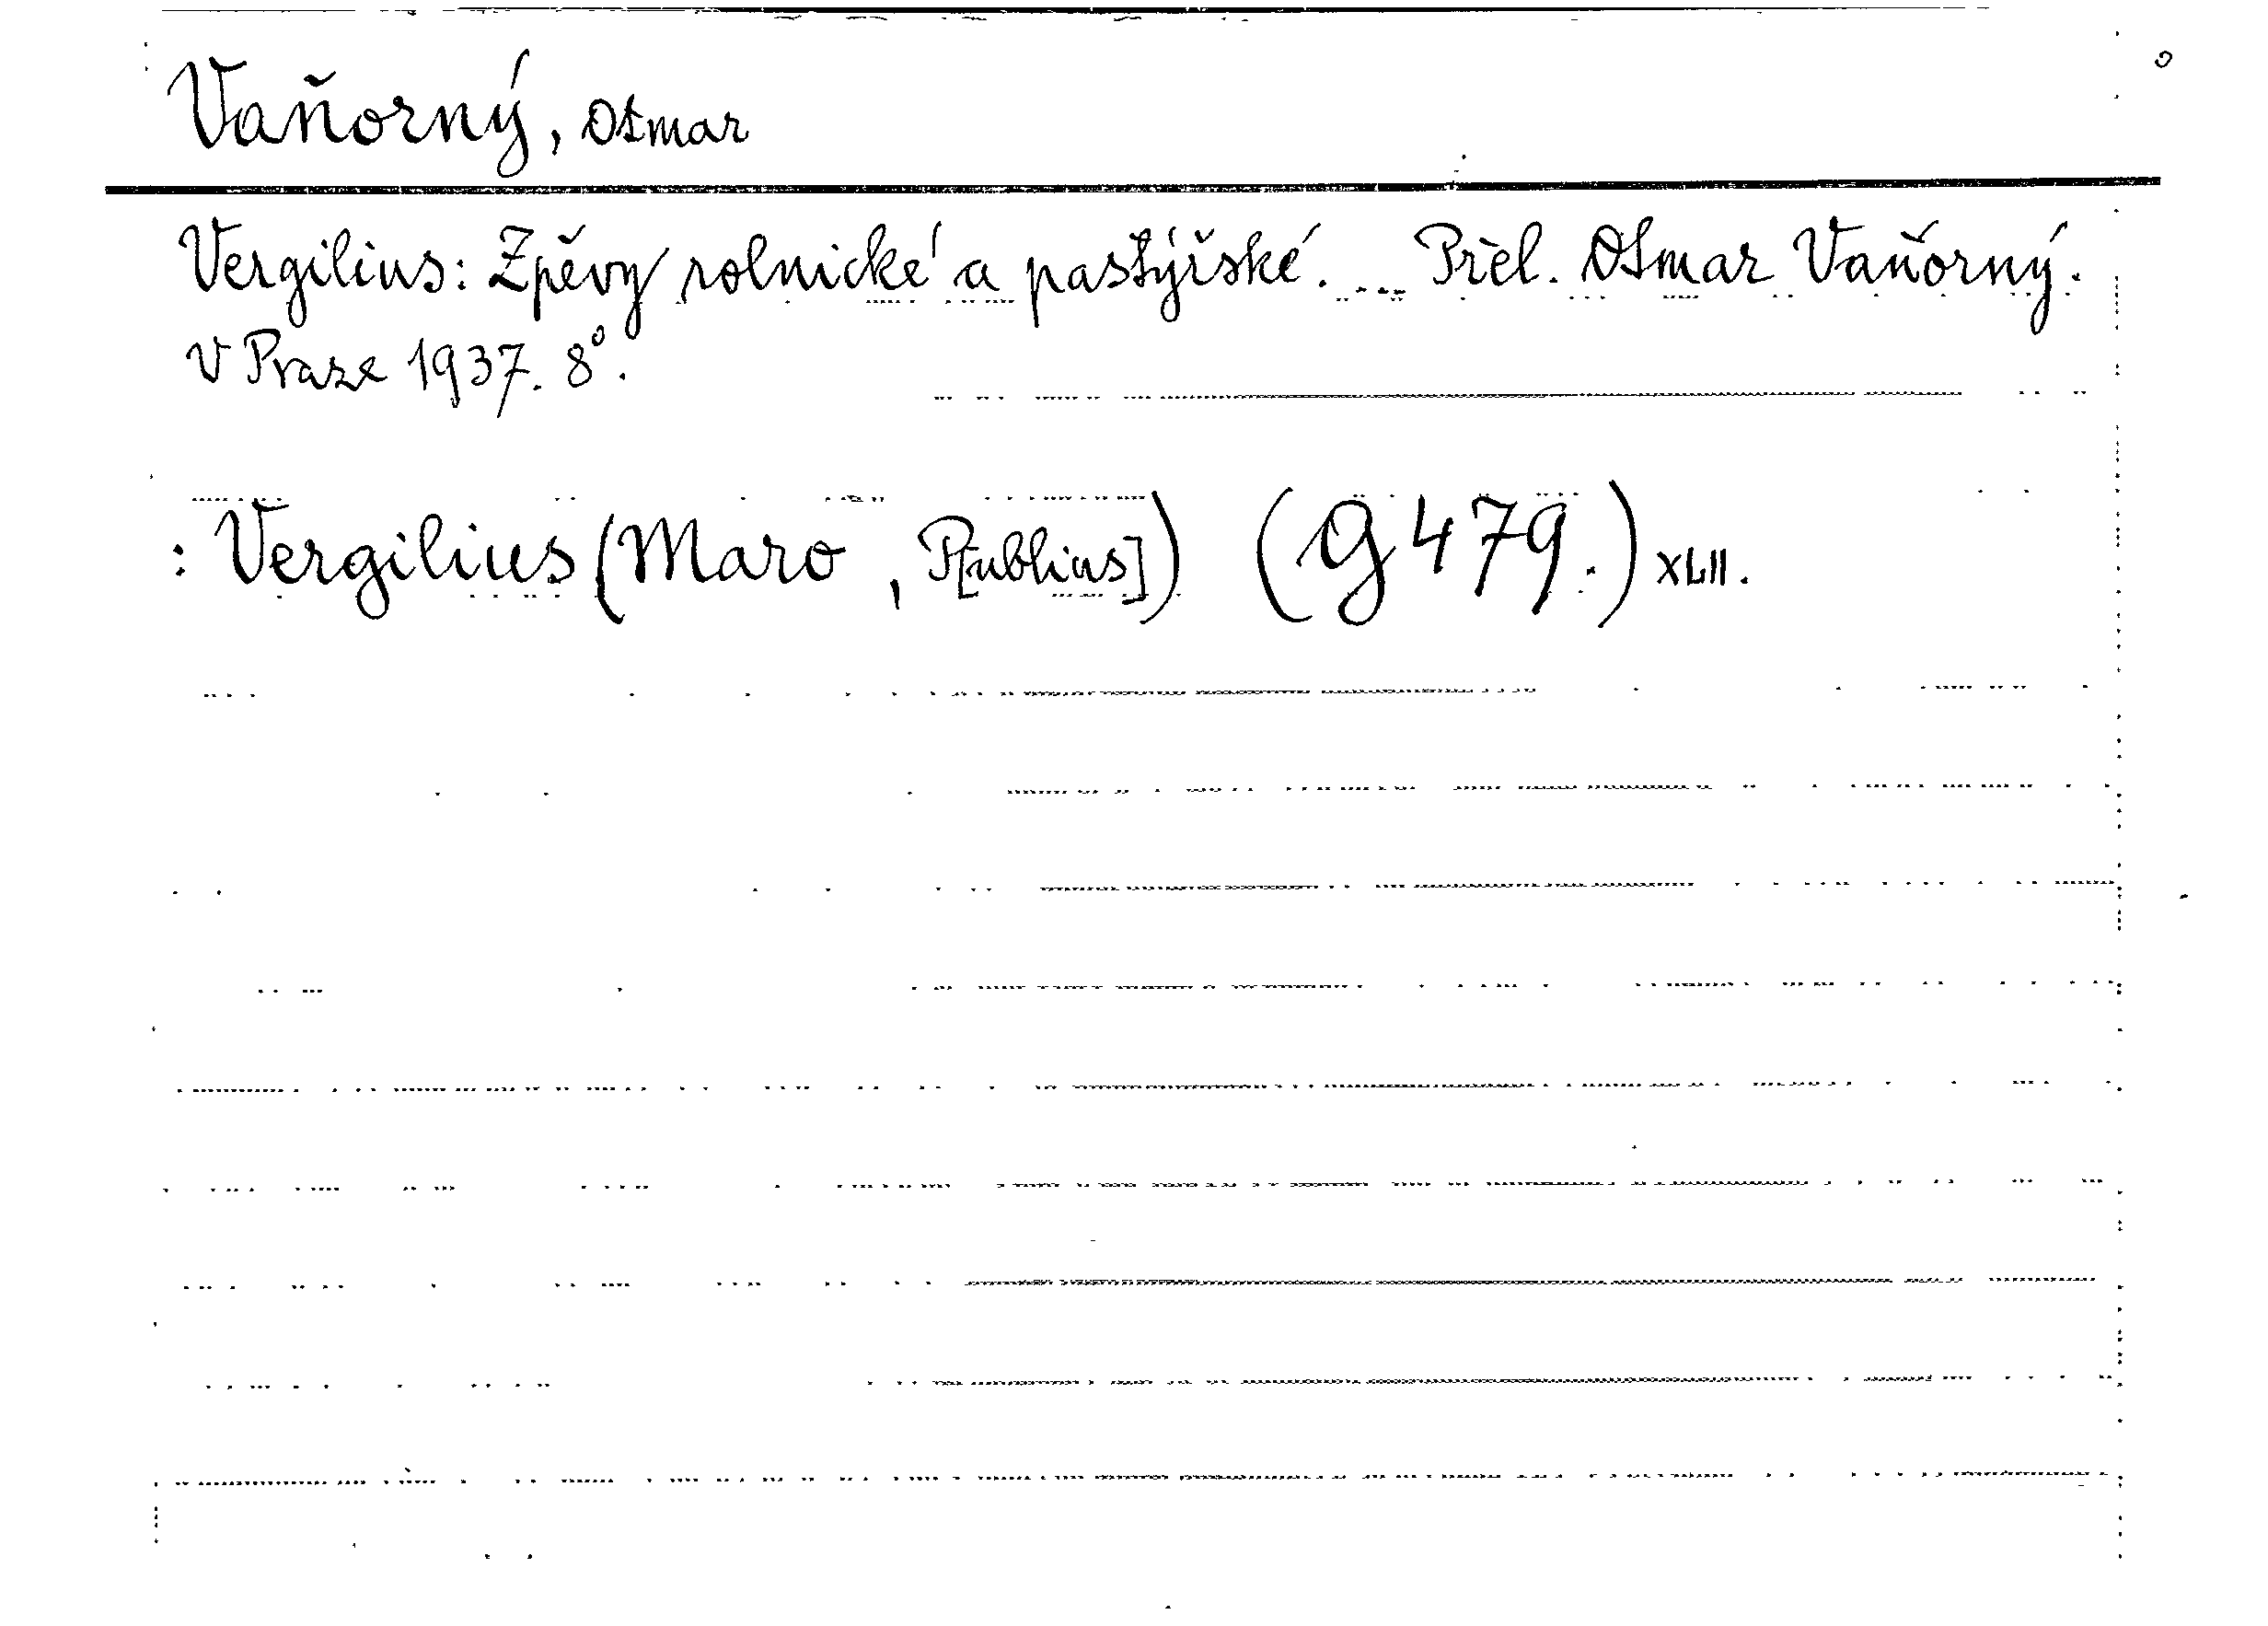 Vaňorný, Otmar
Vergilius: Zpěvy rolnické a pastýřské. ... Přel. Otmar Vaňorný.
V Praze 1937. 8°.
: Vergilius (Maro, P[ublius]) (G 479.) XLII.